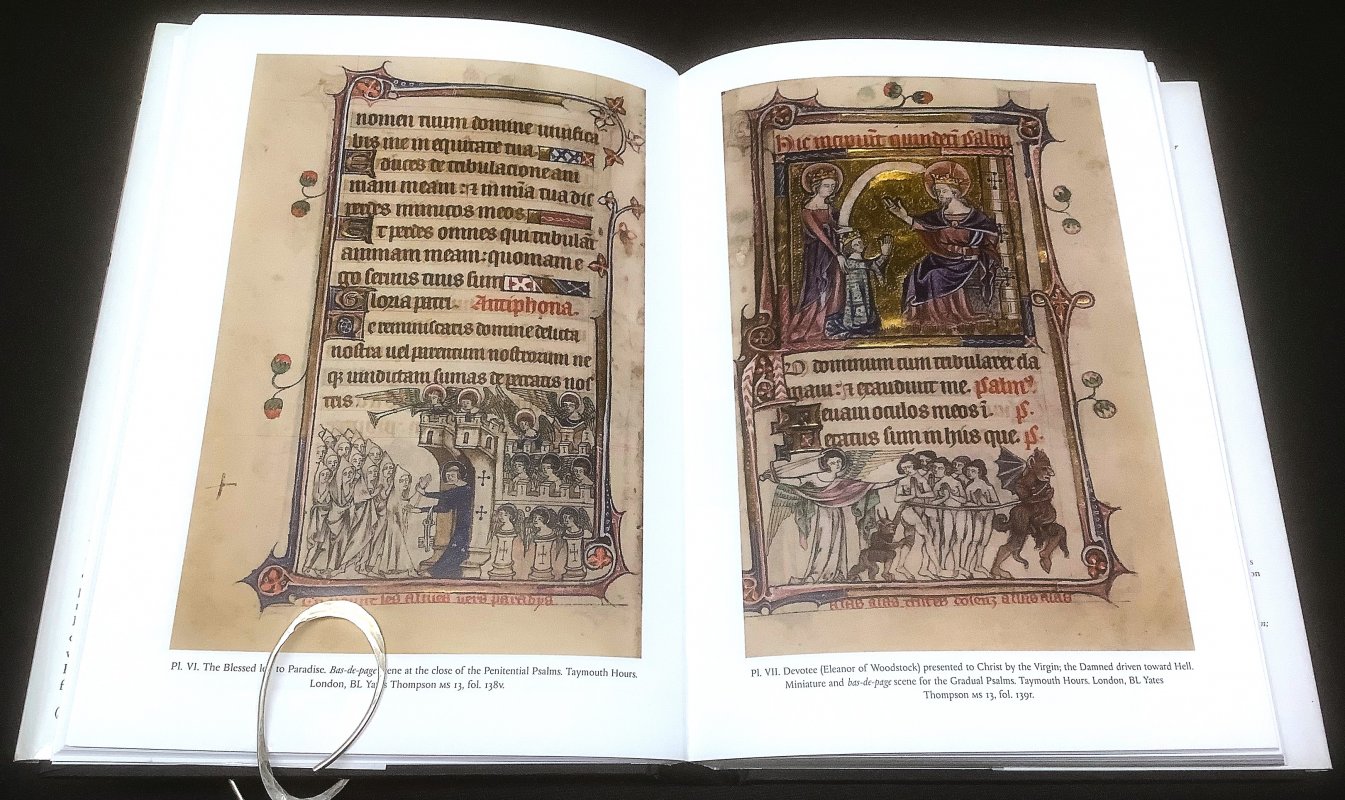 nomen tuum domine uiuifica
bis me in equitate tua.
Educes de tribulacione ani
mam meam: et in mia tua dis
perdes inimicos meos
Et perdes omnes qui tribulāt
animam meam: quoniam e
go seruus tuus sum
Gloria patri. Antiphona.
Ne reminiscaris domine delicta
nostra uel parentum nostrorum ne
q; uindictam sumas de peccatis nos
tris.
les almes vers paradys
Pl. VI. The Blessed to Paradise. Bas-de-page scene at the close of the Penitential Psalms. Taymouth Hours.
London, BL Yates Thompson MS 13, fol. 138v.
Hic incipiūt quindecī psalmi
D dominum cum tribularer cla
maui: et exaudiuit me. psalmꝰ.
Leuam oculos meos ī. ps.
Letatus sum in hiis que. ps.
alas alas
Pl. VII. Devotee (Eleanor of Woodstock) presented to Christ by the Virgin; the Damned driven toward Hell.
Miniature and bas-de-page scene for the Gradual Psalms. Taymouth Hours. London, BL Yates
Thompson MS 13, fol. 139r.